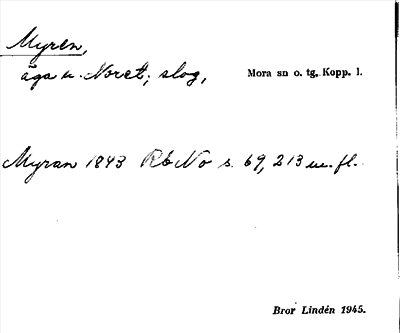 Myren,
äga u. Noret; slog, Mora sn o. tg. Kopp. l.
Myran 1843 Rb No s. 69, 213 m. fl.
Bror Lindén 1945.